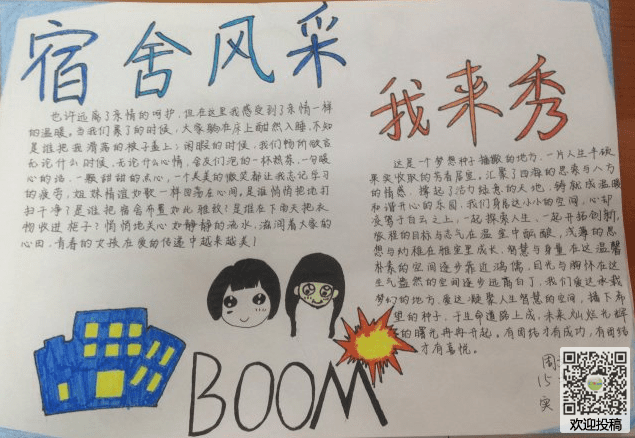 宿舍风采
我来秀
也许远离了亲情的呵护,但在这里我感受到了亲情一样
的温暖。当我们累了的时候,大家躺在床上酣然入睡,不知
是谁把我滑落的被子盖上;闲暇的时候,我们畅所欲言
无论什么时候,无论什么心情,舍友们泡的一杯热茶,一句暖
心的话,一颗甜甜的点心,一个美美的微笑都让我忘记学习
的疲劳,姐妹情谊如歌一样回荡在心间,是谁悄悄把地打
扫干净了是谁把宿舍布置如此雅致?是谁在下雨天把衣
物收进柜子?悄悄地关心如静静的流水,滋润着大家的
心田,青春的女孩在爱的传递中越来越美!
这是个梦想种子播撒的地方,一片人生丰硕
果实收获的秀春居室,汇聚了四海的思素与八方
的情感,撑起了活力绿意的天地,铸就成温暖
和谐开心的乐园,我们身居这小小的空间,心却
遨驾于白云之上,一起探索人生,一起开拓创新,
旅程的目标与志气在温室中酝酿,浅薄的思
想与幼稚在雅室里成长,智慧与身量在这温馨
朴素的空间逐步靠近鸿儒,目光与胸怀在这
生气盎然的空间逐步远离自了,我们爱这承载
梦幻的地方,爱这凝聚人生智慧的空间,播下希
望的种子,于生命道路上成,未来灿烂光辉
的曙光冉冉升起。有团结才有成功,有团结
才有喜悦。
周
15
实
BOOM
欢迎投稿